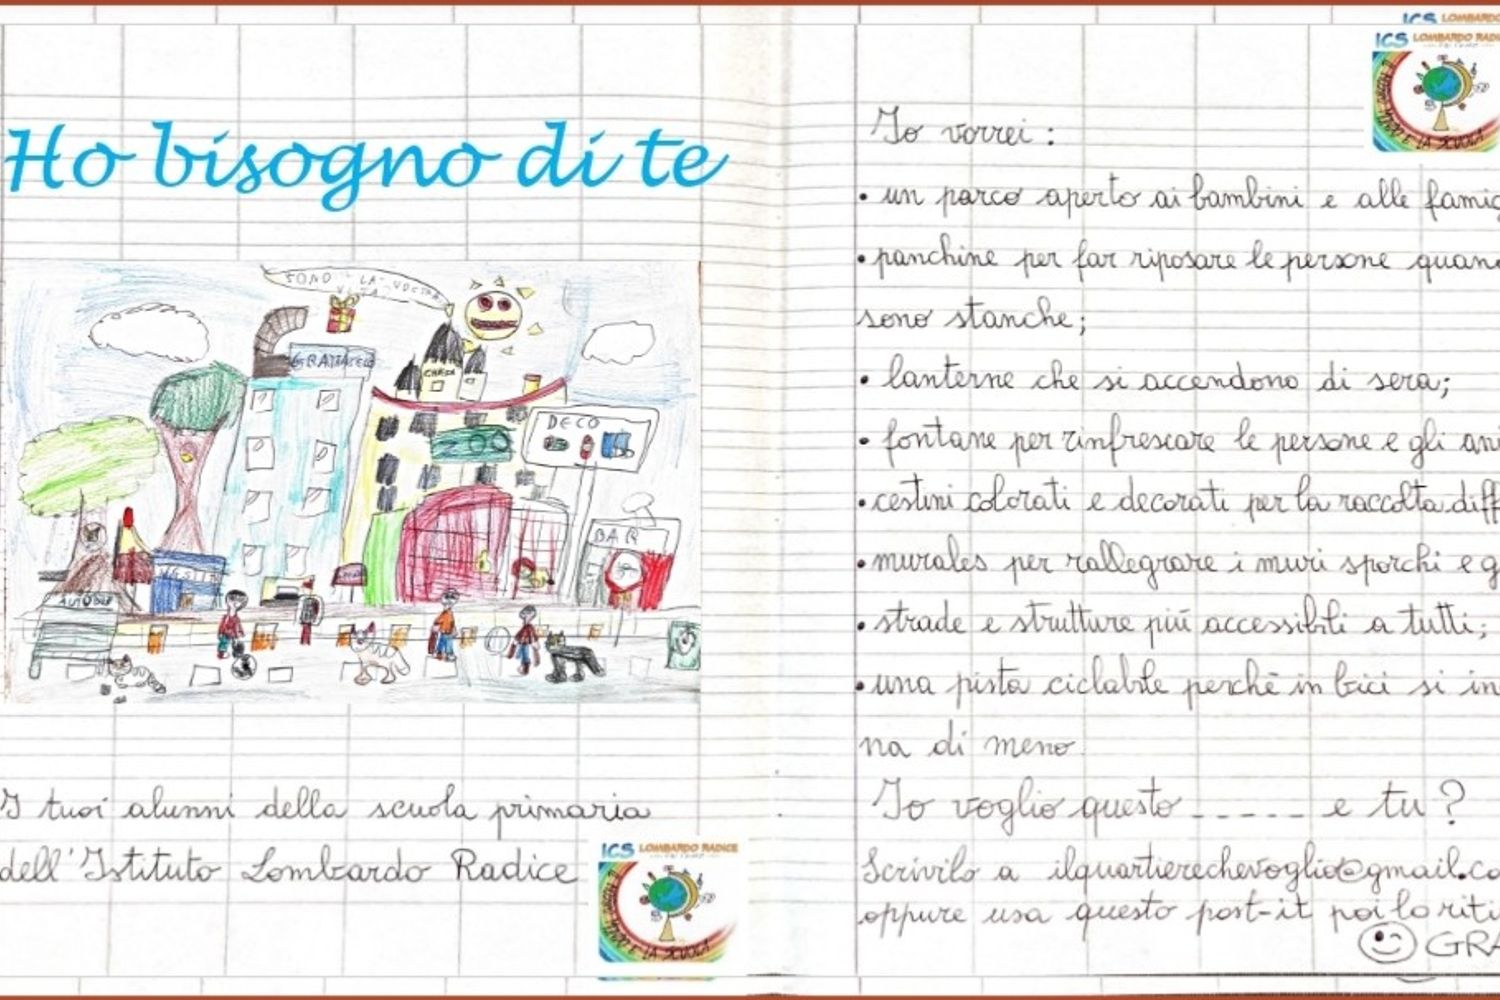 Ho bisogno di te
SONO LA VOSTRA
VITA
GRATTACIELO
CHIESA
DECO
BAR
AUTOBUS
I tuoi alunni della scuola primaria
dell'Istituto Lombardo Radice
ICS LOMBARDO RADICE
E LA SCUOLA
ICS LOMBARDO
ICS LOMBARDO RADI
MONDO E LA SCUOLA
Io vorrei:
• un parco aperto ai bambini e alle famig
• panchine per far riposare le persone quan
sono stanche;
• lanterne che si accendono di sera;
• fontane per rinfrescare le persone e gli ani
• cestini colorati e decorati per la raccolta diff
• murales per rallegrare i muri sporchi e g
• strade e strutture più accessibili a tutti;
• una pista ciclabile perchè in bici si in
na di meno.
Io voglio questo _ _ _ _ _ e tu?
Scrivilo a ilquartierechevoglio@gmail.co
oppure usa questo post-it poi lo riti
GRA